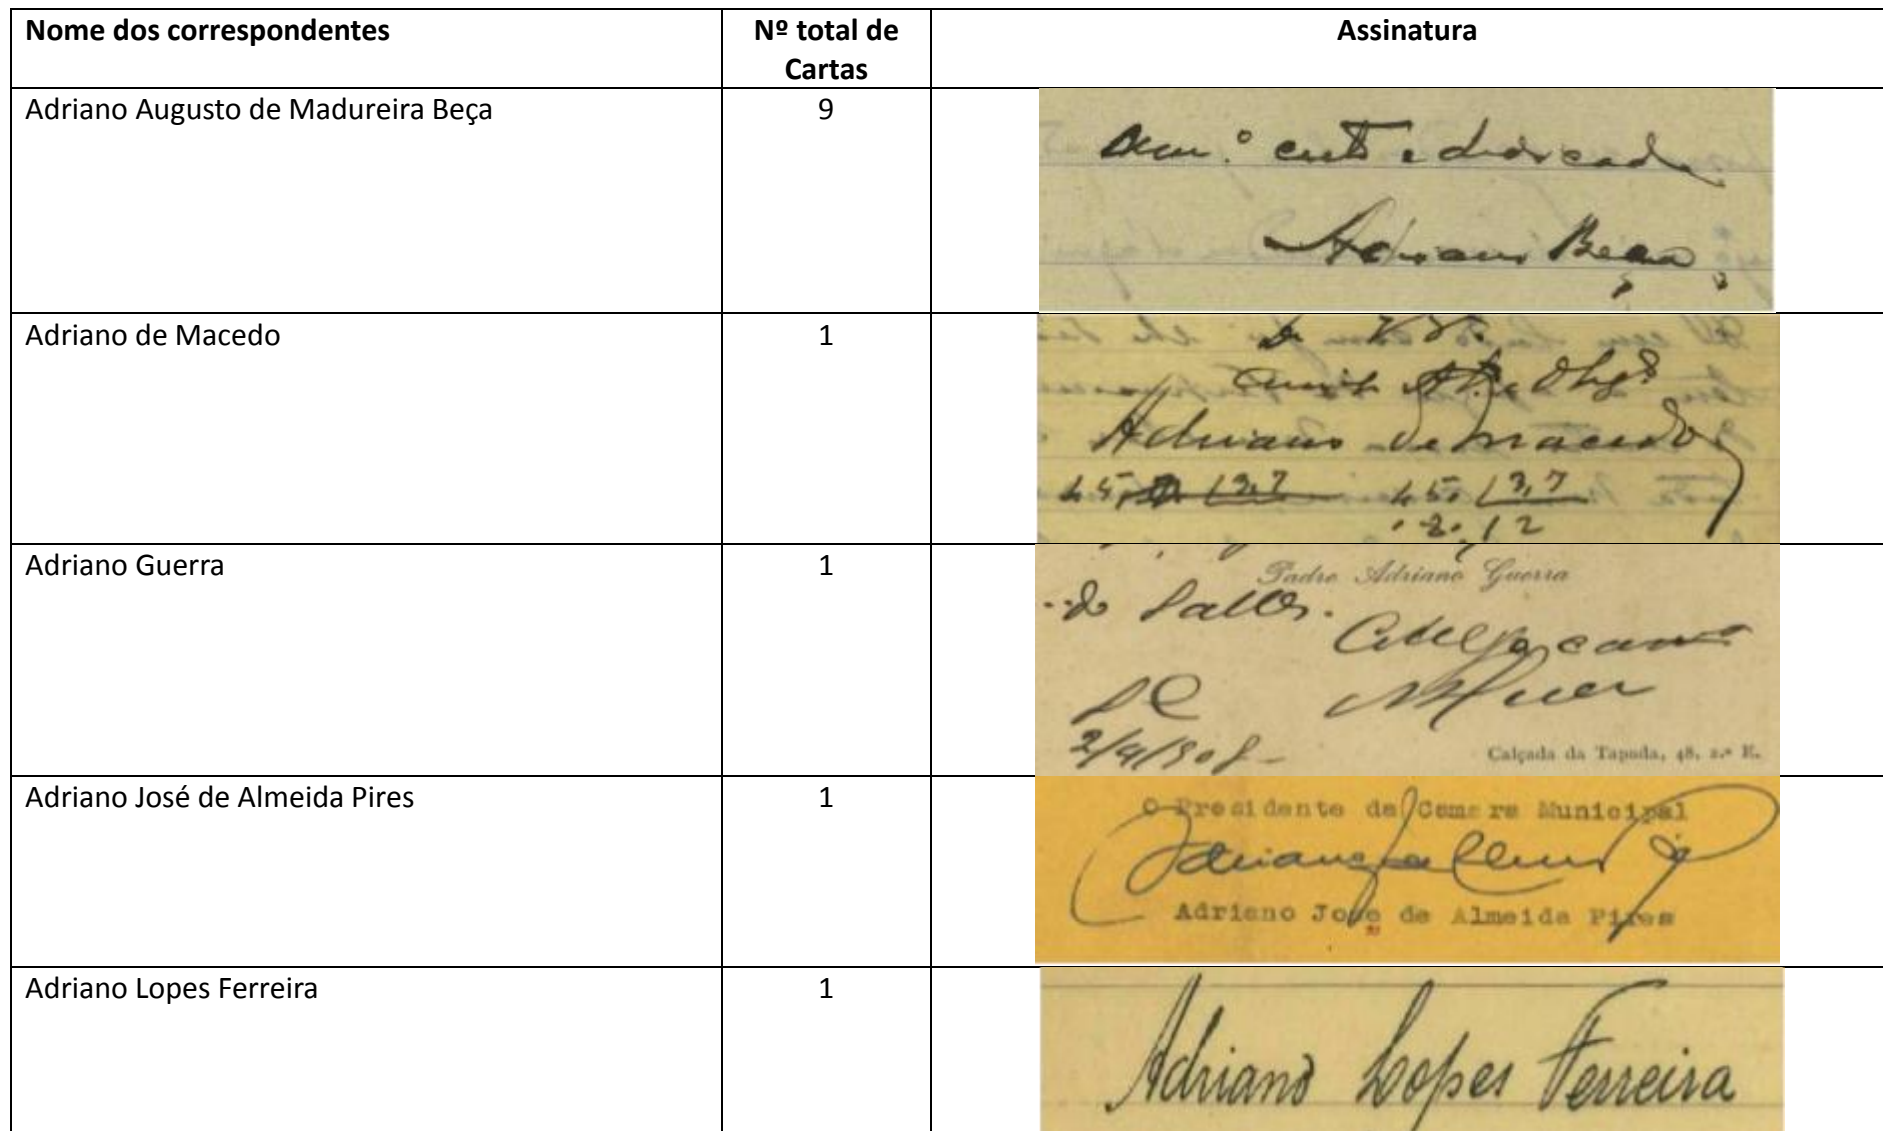 Nome dos correspondentes Nº total de Cartas Assinatura
Adriano Augusto de Madureira Beça 9
Am.º certo e dedicado
Adriano Beça
Adriano de Macedo 1
De V. Sª.
Obgº
Adriano de Macedo
45, 13,7 45, 13,7
12
Adriano Guerra 1
Padre Adriano Guerra
2/4/908
Calçada da Tapada, 48, 2.º E.
Adriano José de Almeida Pires 1
O Presidente da Camara Municipal
Adriano Jose de Almeida Pires
Adriano Lopes Ferreira 1
Adriano Lopes Ferreira